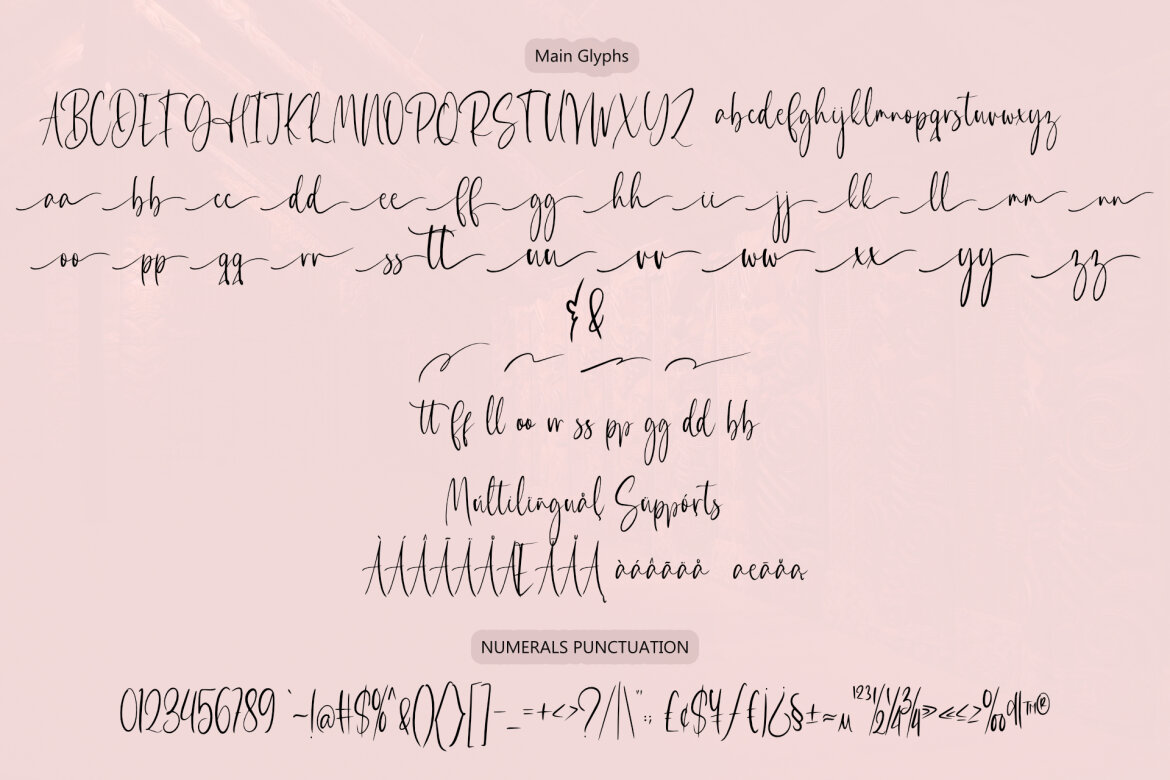 Main Glyphs
ABCDEFGHIJKLMNOPQRSTUVWXYZ abcdefghijklmnopqrstuvwxyz
aa bb cc dd ee ff gg hh ii jj kk ll mm nn
oo pp qq rr ss tt uu vv ww xx yy zz
&
tt ff ll oo rr ss pp gg dd bb
Múltilïñguåļ Süppórţs
ÀÁÂÃÄÅÆ
àáâãäå
NUMERALS PUNCTUATION
0123456789 ` ~!@#$%^&(){}[]-_=+<>?/|\